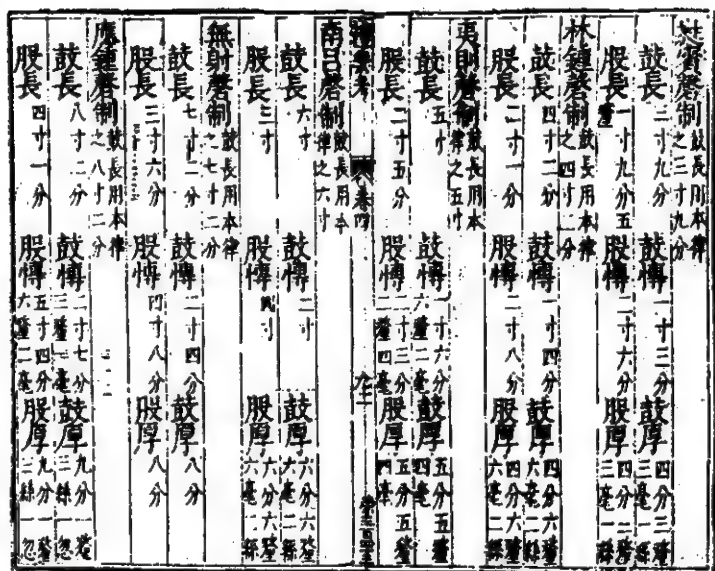 蕤賓磬制鼓長用本律之三寸九分
鼓長三寸九分 鼓愽一寸三分 鼓厚四分三釐三毫一絲
股長一寸九分五釐 股愽二寸六分 股厚四分三釐三毫一絲
林鍾磬制鼓長用本律之四寸二分
鼓長四寸二分 鼓愽一寸四分 鼓厚四分六釐六毫二絲
股長二寸一分 股愽二寸八分 股厚四分六釐六毫二絲
夷則磬制鼓長用本律之五寸
鼓長五寸 鼓愽一寸六分六釐二毫 鼓厚五分五釐四毫
股長二寸五分 股愽二寸三分二釐四毫 股厚五分五釐四毫
卷四
南呂磬制鼓長用本律之六寸
鼓長六寸 鼓愽二寸 鼓厚六分六釐六毫二絲
股長三寸 股愽四寸 股厚六分六釐六毫二絲
無射磬制鼓長用本律之七寸二分
鼓長七寸二分 鼓愽二寸四分 鼓厚八分
股長三寸六分 股愽四寸八分 股厚八分
應鍾磬制鼓長用本律之八寸二分
鼓長八寸二分 鼓愽二寸七分三釐一毫 鼓厚九分一釐三絲一忽
股長四寸一分 股愽五寸四分六釐二毫 股厚九分一釐三絲一忽